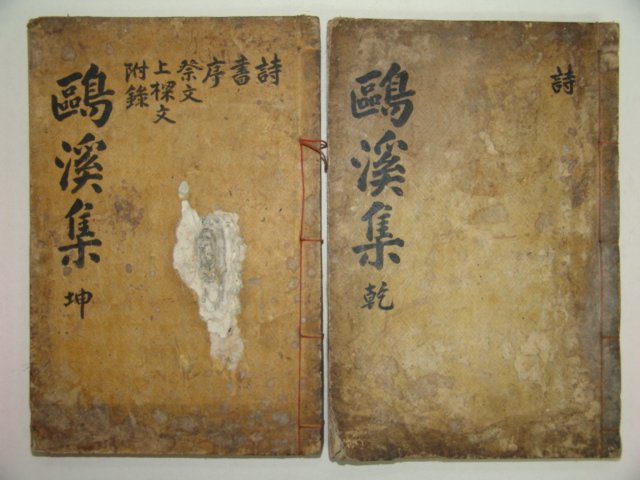 詩
書
序
祭文
上樑文
附錄
鷗溪集
坤
詩
鷗溪集
乾